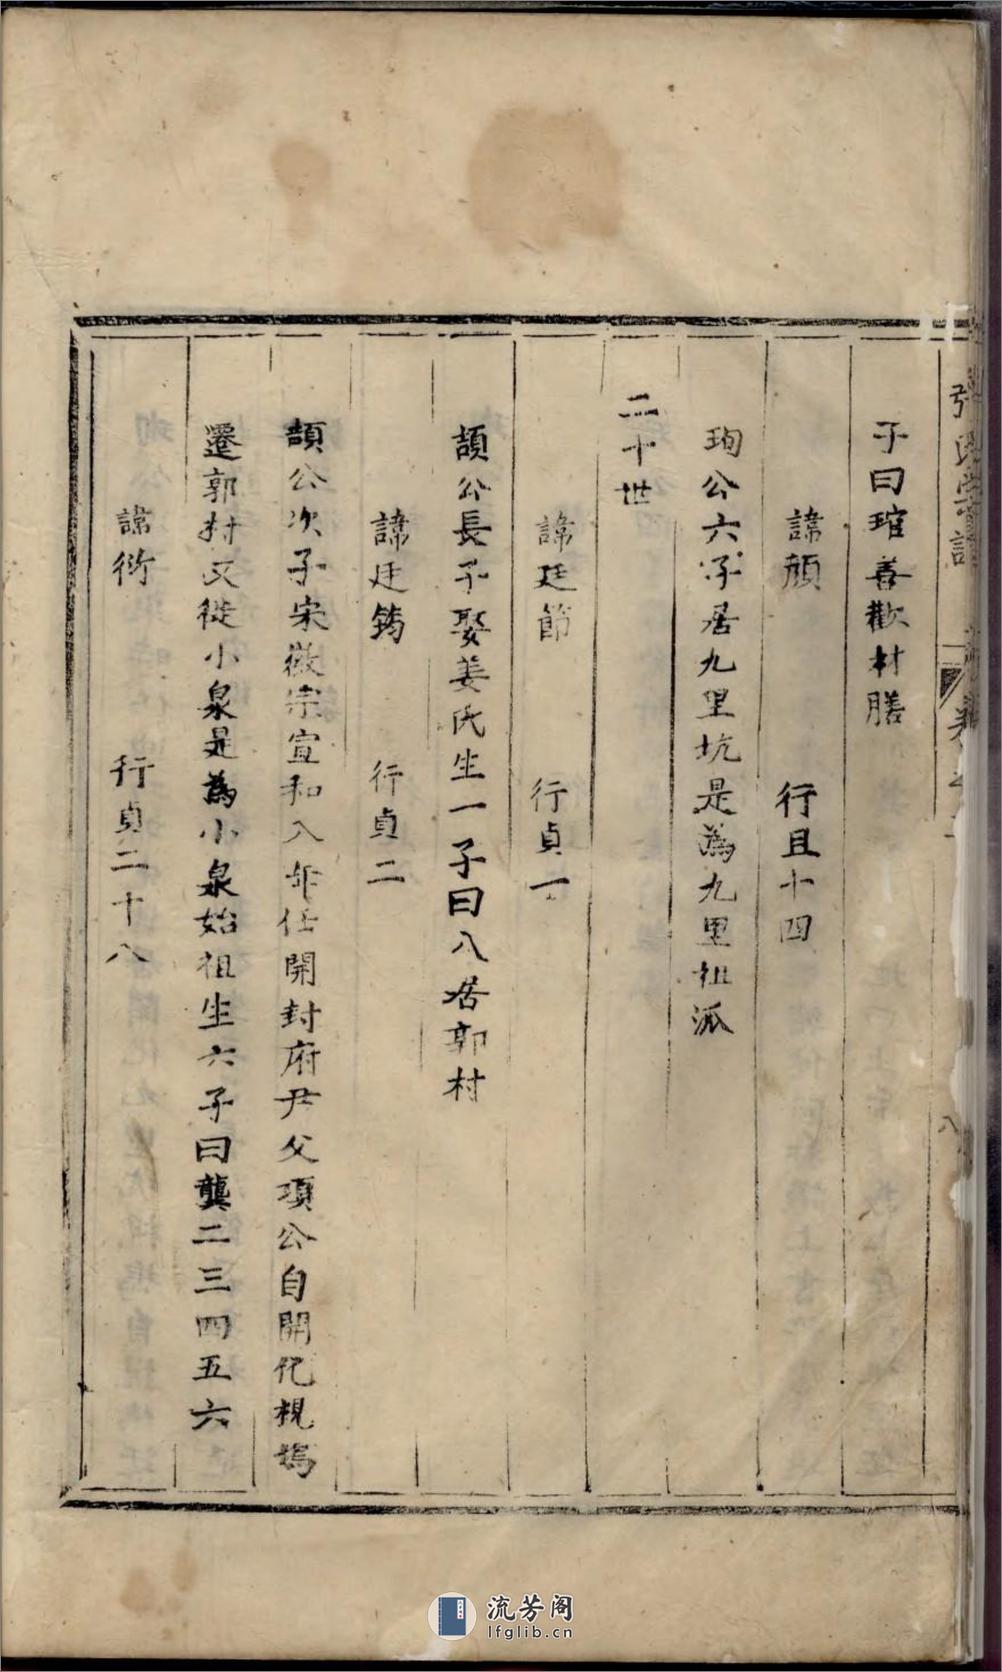 子曰琯善歡材膳
諱頎 行且十四
珣公六子居九里坑是為九里祖派
二十世
諱廷節 行貞一
頡公長子娶姜氏生一子曰八居郭村
諱廷鈞 行貞二
頡公次子宋徽宗宣和八年任開封府尹父項公自開化視塢
遷郭村又徙小泉是為小泉始祖生六子曰龔二三四五六
諱衍 行貞二十八
流芳阁
lfglib.cn